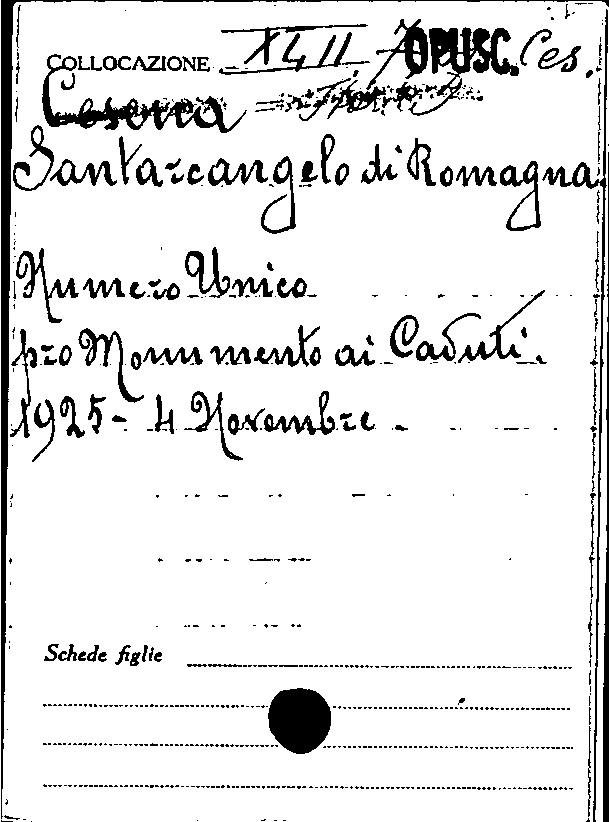 COLLOCAZIONE XLII. 7 OPUSC. Ces.
Cesena
Santarcangelo di Romagna.
Numero Unico
pro Monumento ai Caduti.
1925 - 4 Novembre -
Schede figlie